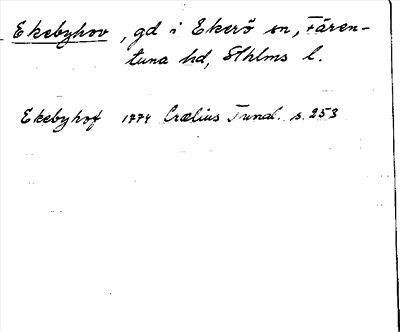 Ekebyhov, gd i Ekerö sn, Fären-
tuna hd, Sthlms l.
Ekebyhof 1774 Crælius Tunal. s. 253